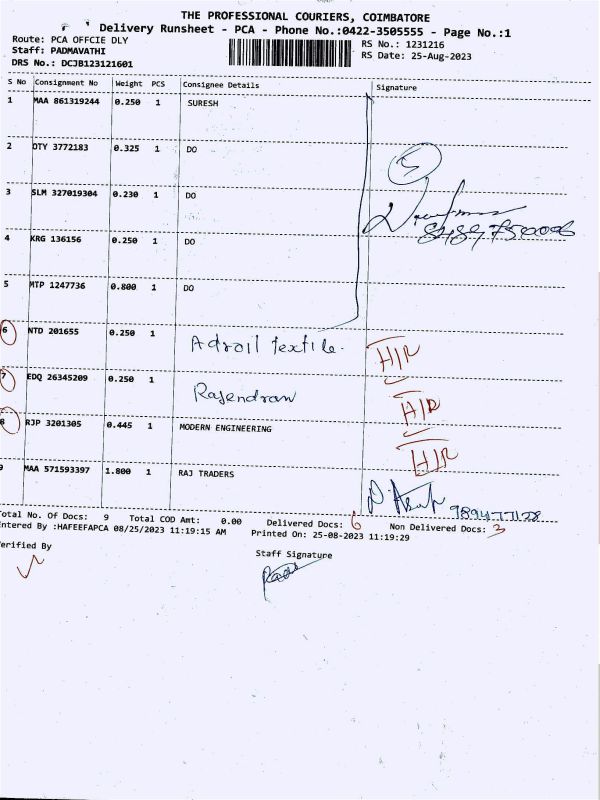 THE PROFESSIONAL COURIERS, COIMBATORE
Delivery Runsheet - PCA - Phone No.:0422-3505555 - Page No.:1
Route: PCA OFFCIE DLY
Staff: PADMAVATHI
DRS No.: DCJB123121601
RS No.: 1231216
RS Date: 25-Aug-2023
S No Consignment No Weight PCS Consignee Details Signature
1 MAA 861319244 0.250 1 SURESH
2 OTY 3772183 0.325 1 DO
3 SLM 327019304 0.230 1 DO
4 KRG 136156 0.250 1 DO
5 MTP 1247736 0.800 1 DO
6 NTD 201655 0.250 1 Adroil textile. H/R
7 EDQ 26345209 0.250 1 Rajendran H/R
8 RJP 3201305 0.445 1 MODERN ENGINEERING H/R
9 MAA 571593397 1.800 1 RAJ TRADERS
Total No. Of Docs: 9 Total COD Amt: 0.00 Delivered Docs: 6 Non Delivered Docs: 3
Entered By :HAFEEFAPCA 08/25/2023 11:19:15 AM Printed On: 25-08-2023 11:19:29
Verified By
Staff Signature